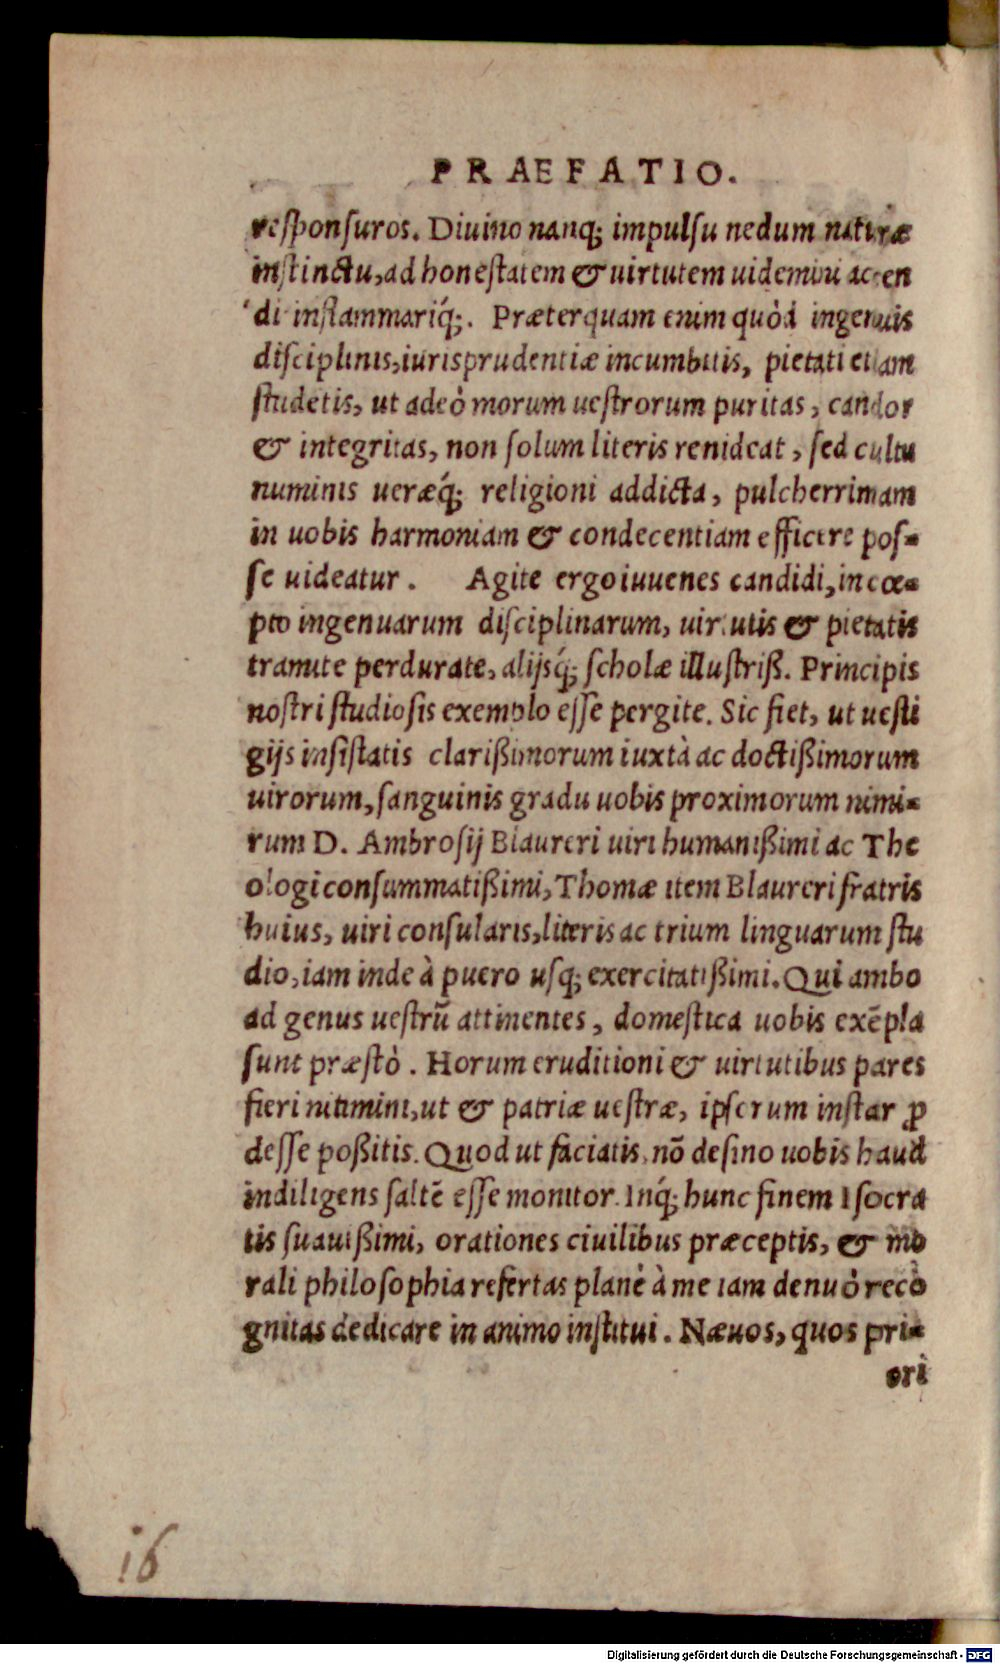 PRAEFATIO.
responsuros. Diuino nanq; impulsu nedum naturæ
instinctu, ad honestatem & uirtutem uidemini accen
di inflammariq́;. Præterquam enim quòd ingenuis
disciplinis, iurisprudentiæ incumbitis, pietati etiam
studetis, ut adeò morum uestrorum puritas, candor
& integritas, non solum literis renideat, sed cultu
numinis ueræq́; religioni addicta, pulcherrimam
in uobis harmoniam & condecentiam efficere pos-
se uideatur. Agite ergo iuuenes candidi, incœ-
pto ingenuarum disciplinarum, uirtutis & pietatis
tramite perdurate, alijsq́; scholæ illustriß. Principis
nostri studiosis exemplo esse pergite. Sic fiet, ut uesti
gijs insistatis clarißimorum iuxtà ac doctißimorum
uirorum, sanguinis gradu uobis proximorum nimi-
rum D. Ambrosij Blaureri uiri humanißimi ac The
ologi consummatißimi, Thomæ item Blaureri fratris
huius, uiri consularis, literis ac trium linguarum stu
dio, iam inde à puero usq; exercitatißimi. Qui ambo
ad genus uestrũ attinentes, domestica uobis exẽpla
sunt præstò. Horum eruditioni & uirtutibus pares
fieri nitimini, ut & patriæ uestræ, ipsorum instar ꝓ
desse poßitis. Quod ut faciatis, nõ desino uobis haud
indiligens saltẽ esse monitor. Inq́; hunc finem Isocra
tis suauißimi, orationes ciuilibus præceptis, & mo
rali philosophia refertas planè à me iam denuò reco
gnitas dedicare in animo institui. Næuos, quos pri-
ori
16
Digitalisierung gefördert durch die Deutsche Forschungsgemeinschaft - DFG